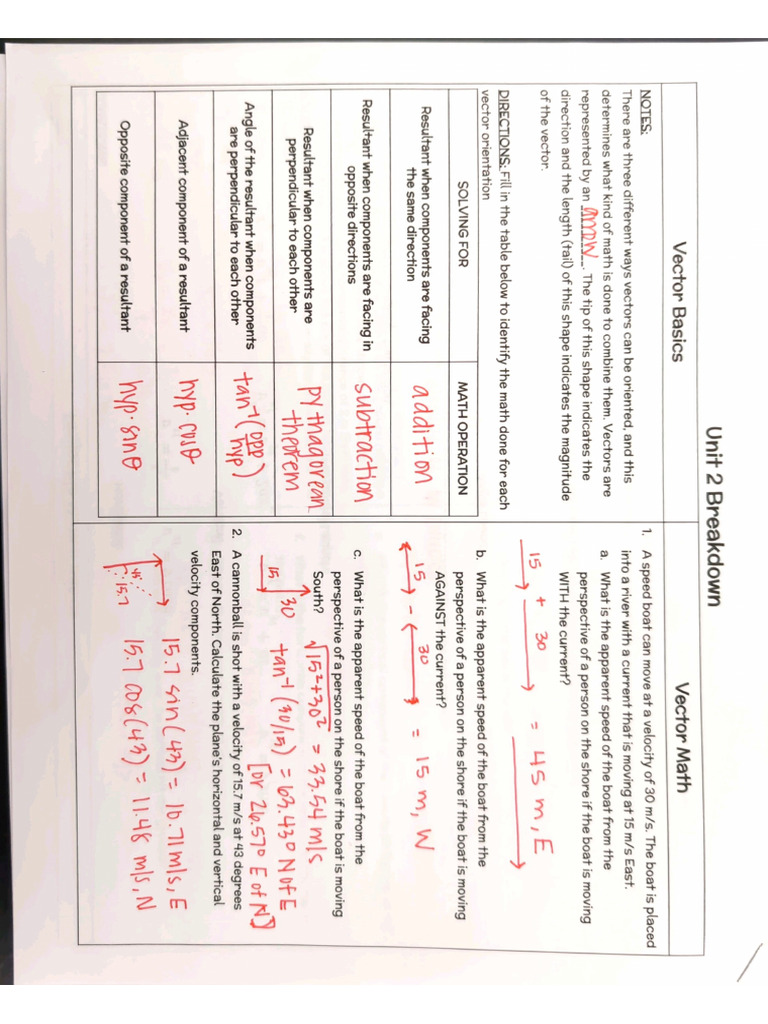 Unit 2 Breakdown
Vector Basics
NOTES:
There are three different ways vectors can be oriented, and this
determines what kind of math is done to combine them. Vectors are
represented by an arrow. The tip of this shape indicates the
direction and the length (tail) of this shape indicates the magnitude
of the vector.
DIRECTIONS: Fill in the table below to identify the math done for each
vector orientation
SOLVING FOR
MATH OPERATION
Resultant when components are facing
the same direction
addition
Resultant when components are facing in
opposite directions
subtraction
Resultant when components are
perpendicular to each other
pythagorean
theorem
Angle of the resultant when components
are perpendicular to each other
tan⁻¹(opp/hyp)
Adjacent component of a resultant
hyp·cosθ
Opposite component of a resultant
hyp·sinθ
Vector Math
1. A speed boat can move at a velocity of 30 m/s. The boat is placed
into a river with a current that is moving at 15 m/s East.
a. What is the apparent speed of the boat from the
perspective of a person on the shore if the boat is moving
WITH the current?
15 + 30 = 45 m, E
b. What is the apparent speed of the boat from the
perspective of a person on the shore if the boat is moving
AGAINST the current?
15 - 30 = 15 m, W
c. What is the apparent speed of the boat from the
perspective of a person on the shore if the boat is moving
South? √15²+30² = 33.54 m/s
15 30 tan⁻¹(30/15) = 63.43° N of E
[or 26.57° E of N]
2. A cannonball is shot with a velocity of 15.7 m/s at 43 degrees
East of North. Calculate the plane's horizontal and vertical
velocity components.
15.7 sin(43) = 10.71 m/s, E
15.7
15.7 cos(43) = 11.48 m/s, N